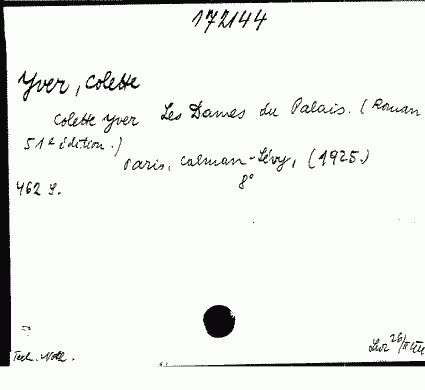 172144
Yver, Colette
Colette Yver Les Dames du Palais. (Roman
51e édition.)
Paris, Calman-Lévy, (1925.)
8°
462 S.